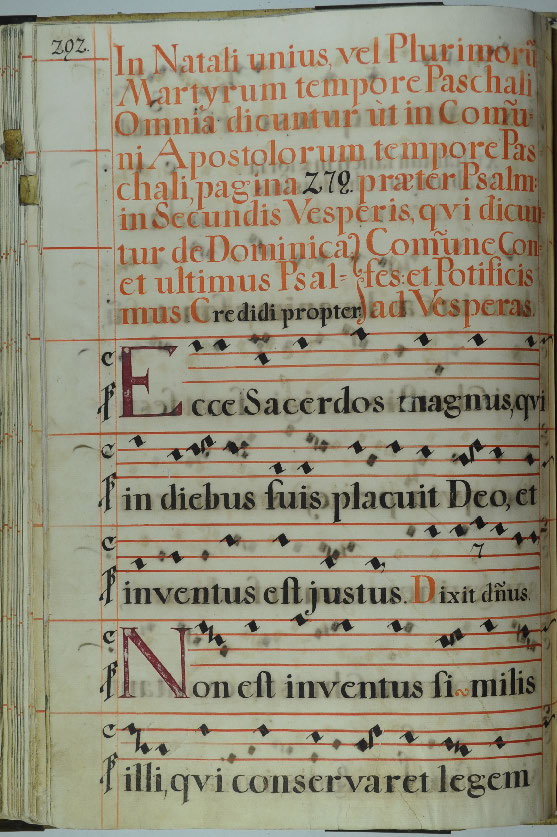 292.
In Natali unius, vel Plurimorũ
Martyrum tempore Paschali
Omnia dicuntur ùt in Com̃u-
ni Apostolorum tempore Pas
chali, pagina 279. præter Psalm:
in Secundis Vesperis, qvi dicun-
tur de Dominica,
et ultimus Psal-
mus Credidi propter
Com̃une Con-
fes: et Potificis
ad Vesperas.
Ecce Sacerdos magnus, qvi
in diebus suis placuit Deo, et
inventus est justus. Dixit dñus.
7
Non est inventus si~milis
illi, qvi conservaret legem